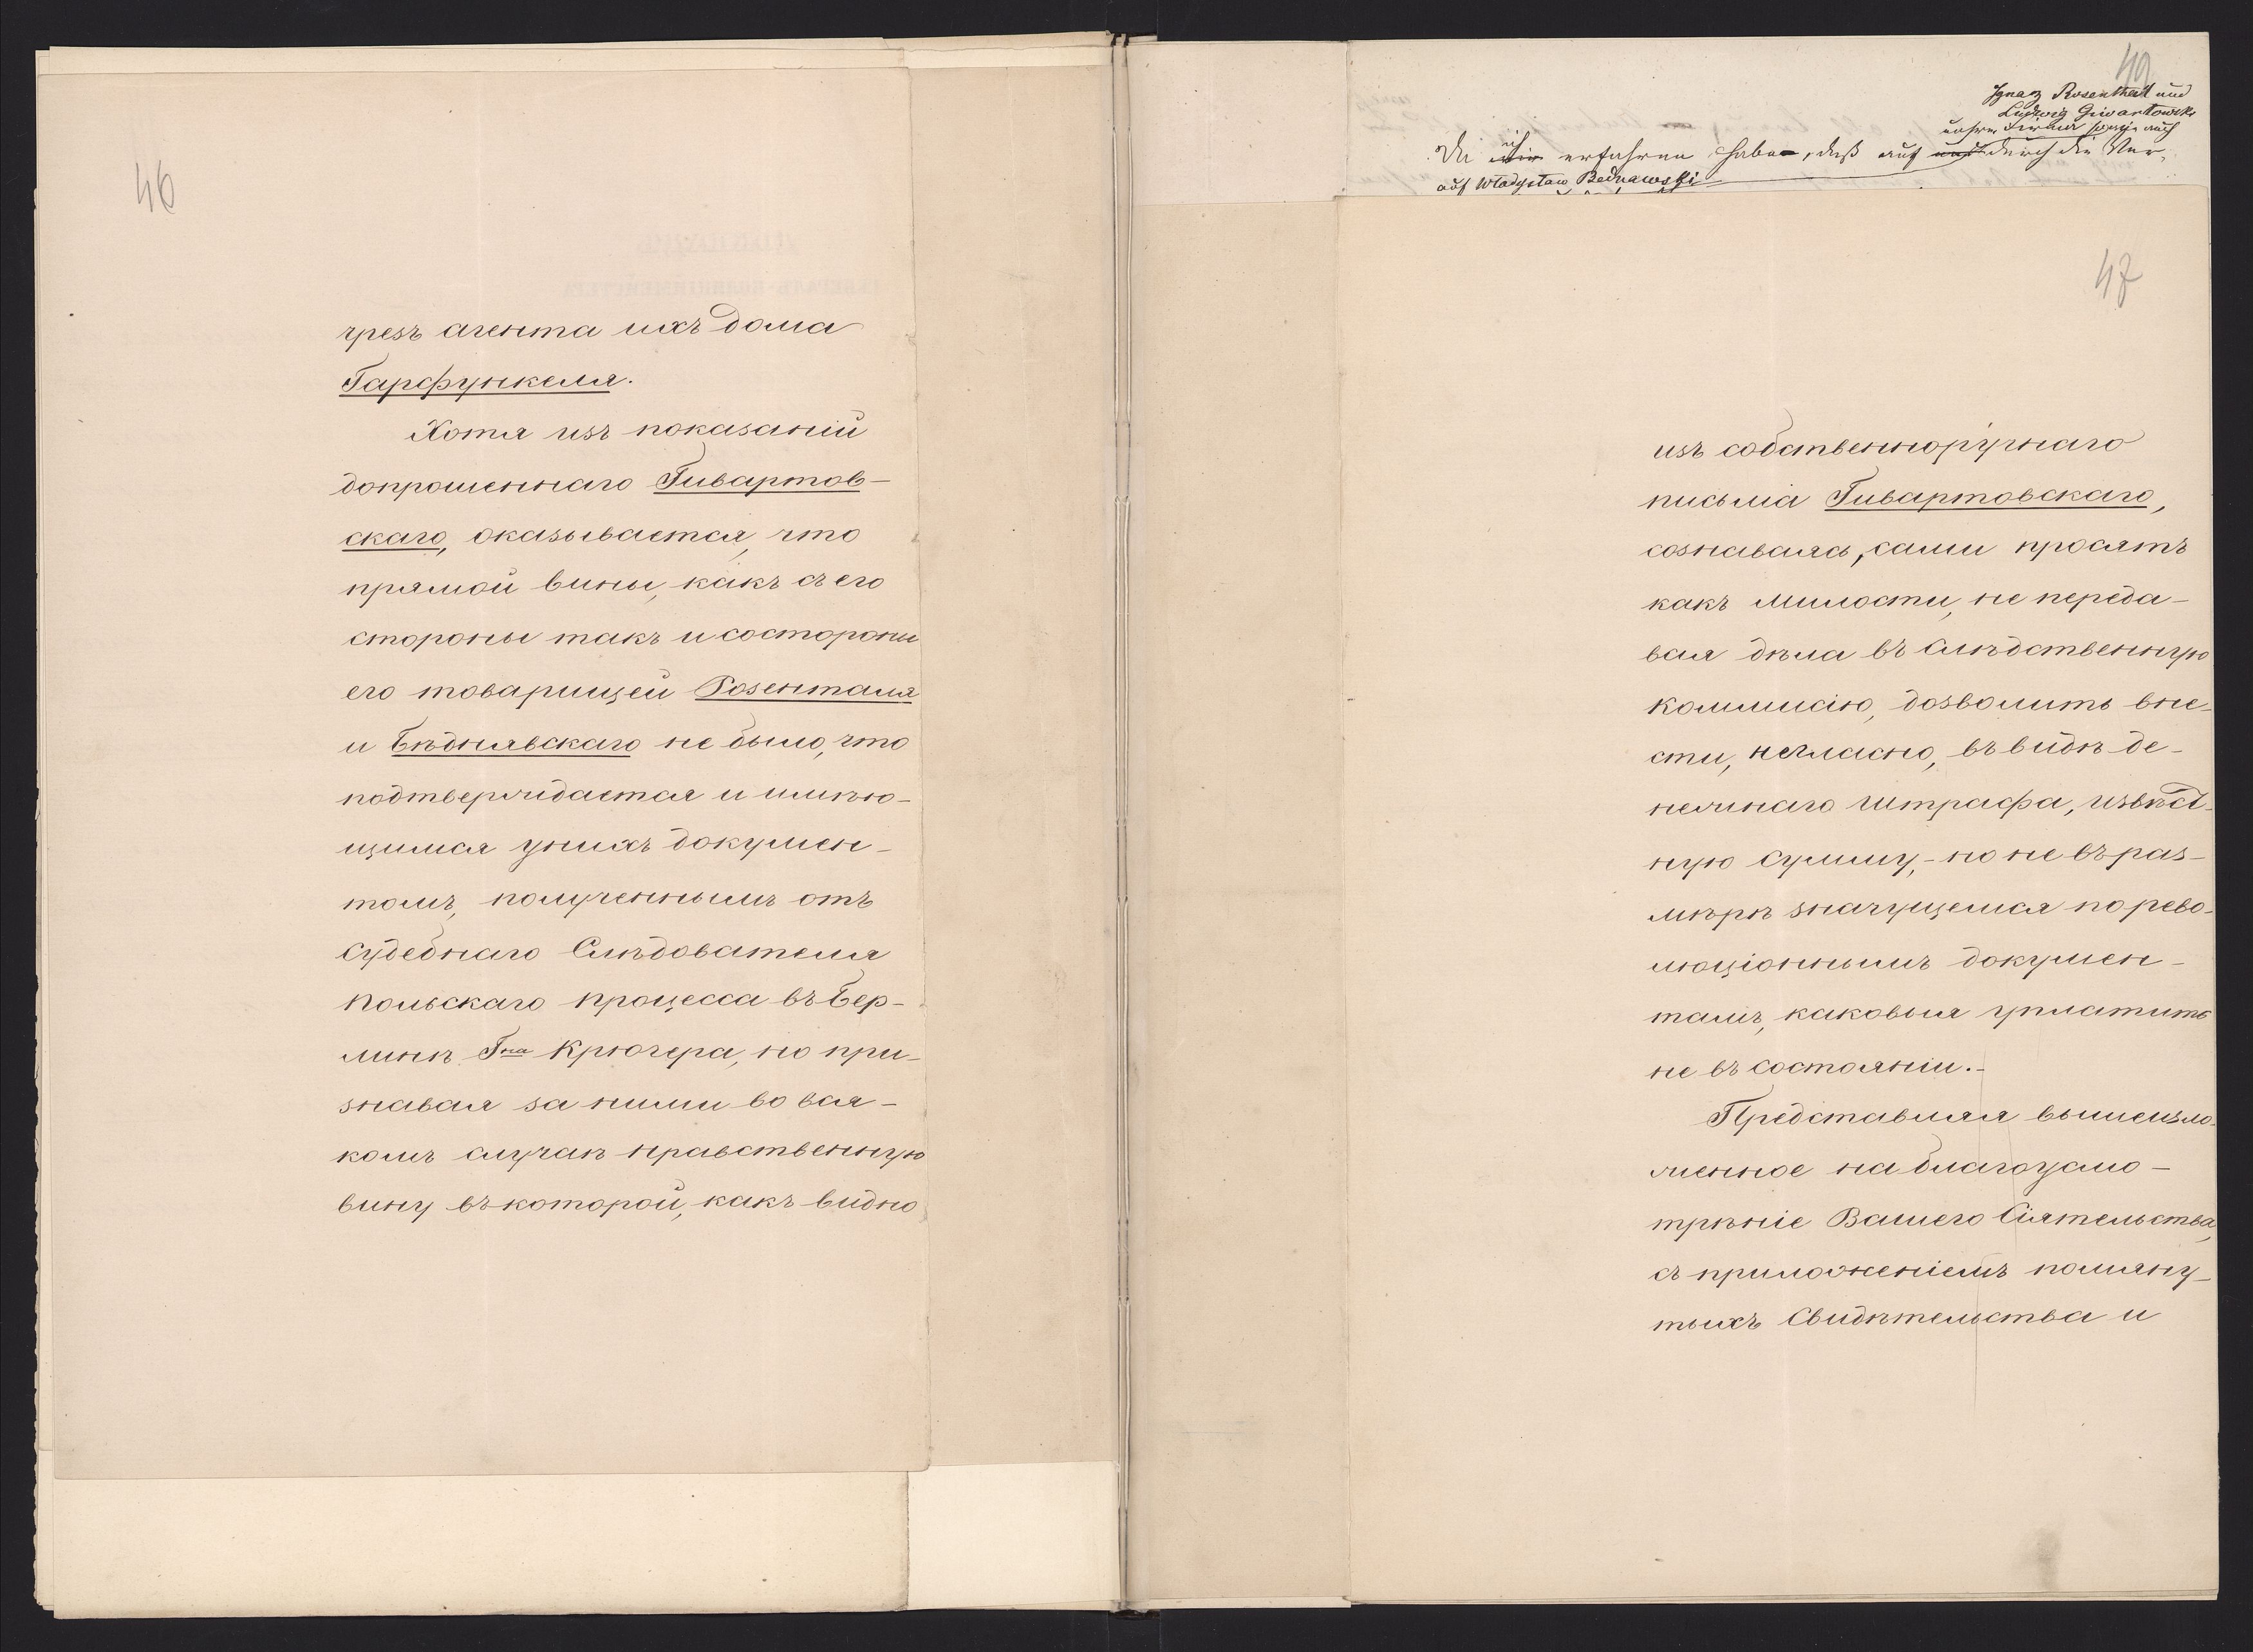 46
чрезъ агента ихъ дома
Гарфункеля.
Хотя изъ показаній
допрошеннаго Гивартов-
скаго, оказывается, что
прямой вины, какъ съ его
стороны такъ и со стороны
его товарищей Розенталя
и Бѣднявскаго не было, что
подтверждается и имѣю-
щимся у нихъ докумен-
томъ, полученнымъ отъ
Судебнаго Слѣдователя
Польскаго процесса въ Бер-
линѣ Гна Крюгера, но при-
знавая за ними во вся-
комъ случаѣ нравственную
вину въ которой, какъ видно
49
Ignaz Rosenthal und
Ludwig Giwartowski
unsere Firma sowie auch
Da ich wir erfahren habe, daß auf und durch die Ver-
auf Władysław Bednawski
47
изъ собственноручнаго
письма Гивартовскаго,
сознаваясь, сами просятъ
какъ милости, не переда-
вая дѣла въ Слѣдственную
Коммисію, дозволить вне-
сти, негласно, въ видѣ де-
нежнаго штрафа, извѣст-
ную сумму,- но не въ раз-
мѣрѣ значущемся по рево-
люціоннымъ докумен-
тамъ, каковыя уплатить
не въ состояніи.-
Представляя вышеизло-
женное на благоусмо-
трѣніе Вашего Сіятельства,
съ приложеніемъ помяну-
тыхъ Свидѣтельства и